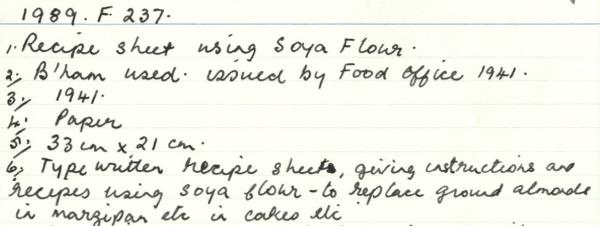 1989. F 237.
1. Recipe sheet using Soya Flour.
2. B'ham used. issued by Food Office 1941.
3. 1941.
4. Paper
5. 33 cm x 21 cm.
6. Type written recipe sheets, giving instructions and
recipes using soya flour - to replace ground almonds
in marzipan etc in cakes etc